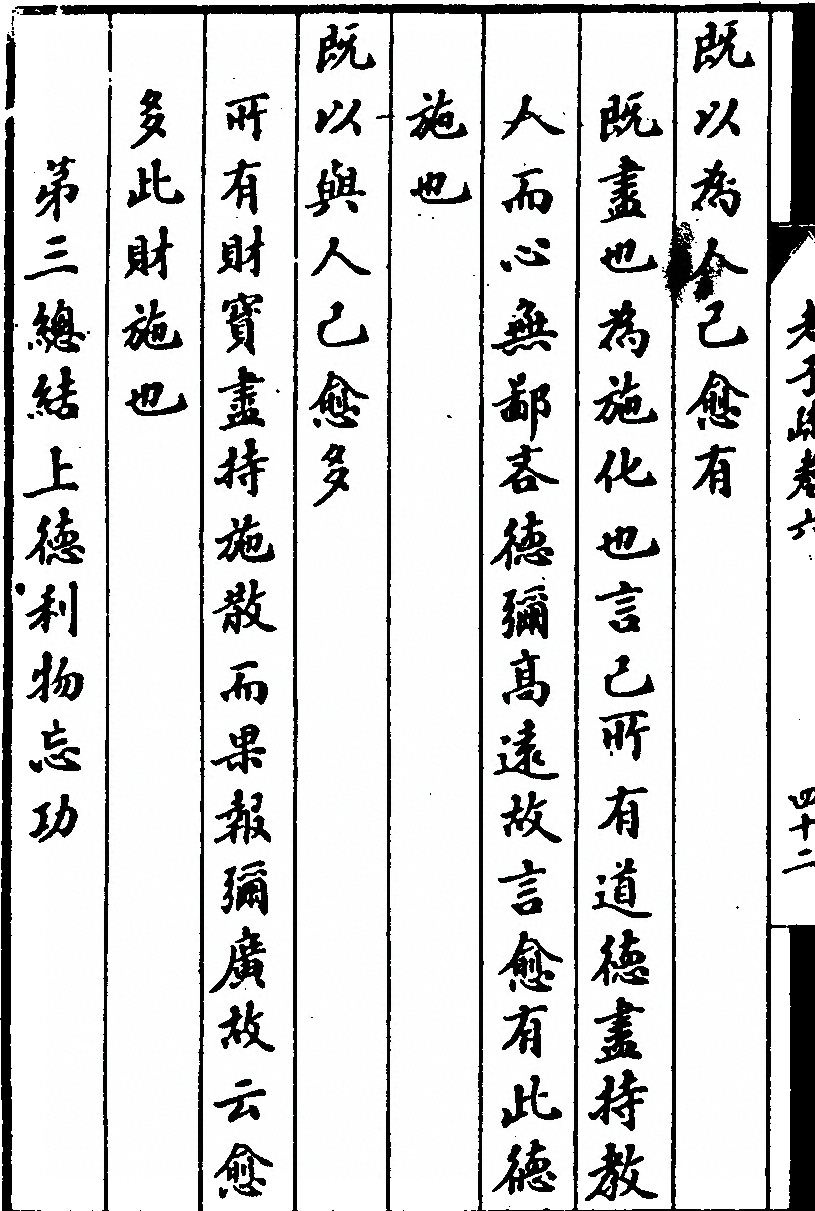 既以為人己愈有
既盡也為施化也言己所有道德盡持教
人而心無鄙吝德彌高遠故言愈有此德
施也
既以與人己愈多
所有財寶盡持施散而果報彌廣故云愈
多此財施也
第三總結上德利物忘功
老子疏卷六
四十二